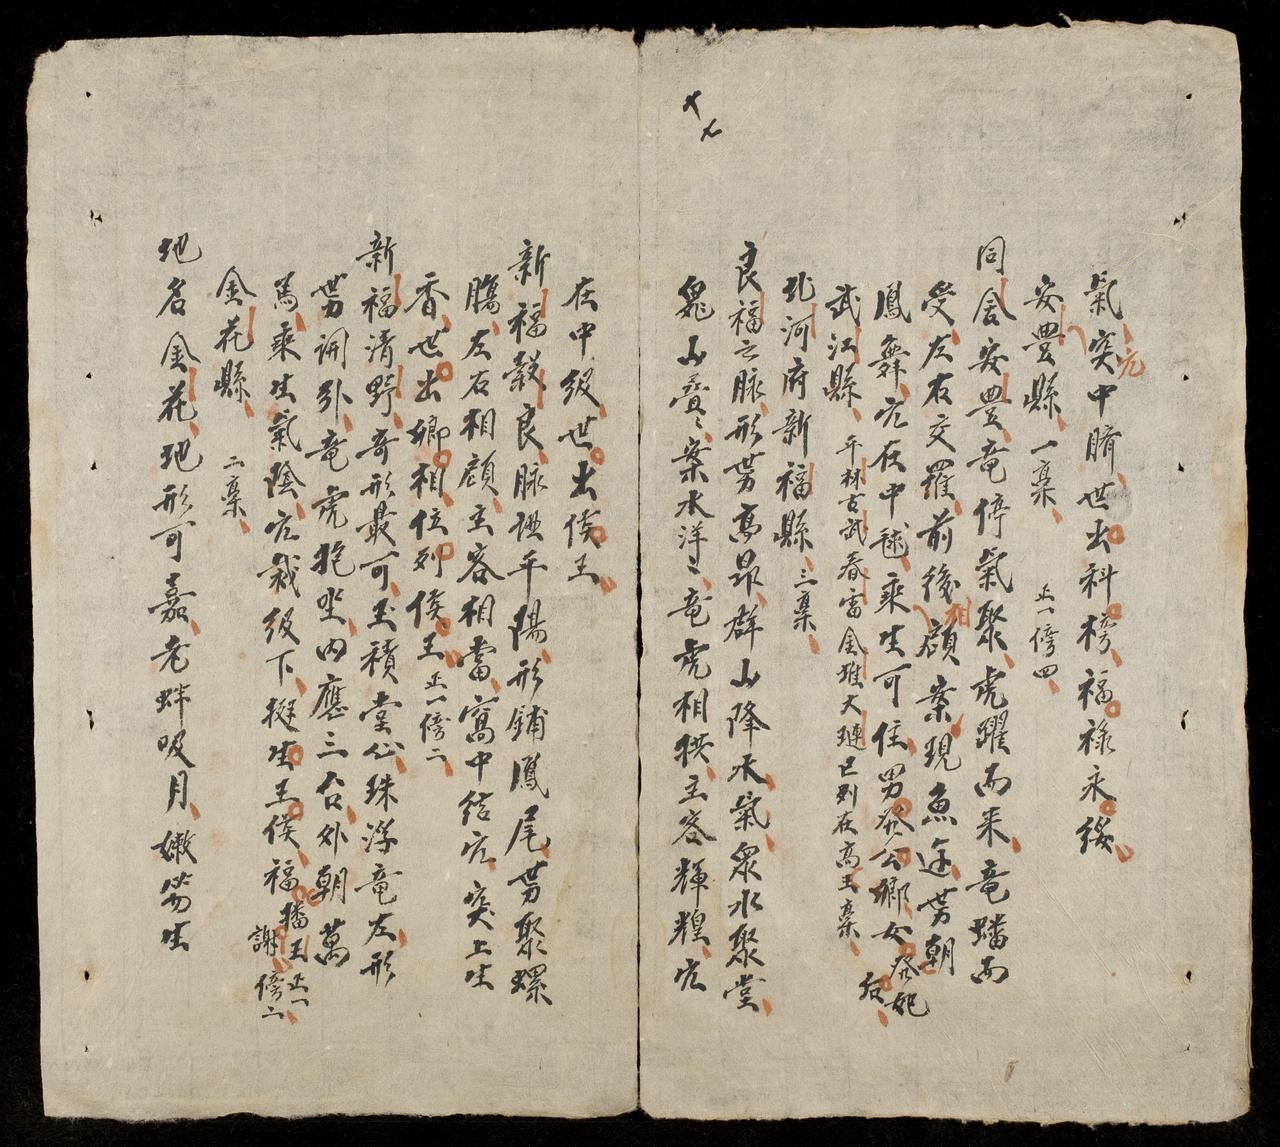 氣突中臍世出科榜福祿永綏
穴
安豊縣一稾 正一傍四
同舍安豊竜停氣聚虎躍而来竜蟠而
受左右交羅前後顧案現魚逆势朝
相
鳳舞穴在中毬乘生可住男發公卿女發妃
后
武江縣 平林古武春雷金堆大璉已列在高王稾
北河府新福縣 三稾
良福之脉形势高昂群山降氣衆水聚堂
嵬山疊〻案水洋〻竜虎相拱主客輝煌穴
在中级世出侯王
新福穀良脉迯平陽形鋪鳳尾势聚螺
腸左右相顧主客相當窩中结穴突上生
香世出卿相位列侯王 正一傍二
新福清野奇形最可玉積堂心珠浮竜左形
势開引竜虎抱坐内應三台外朝萬
馬乘生氣陰穴裁级下挺生王侯福
播王謝 正一傍二
金花縣 二稾
地名金花地形可嘉老蚌吸月嫩笋生